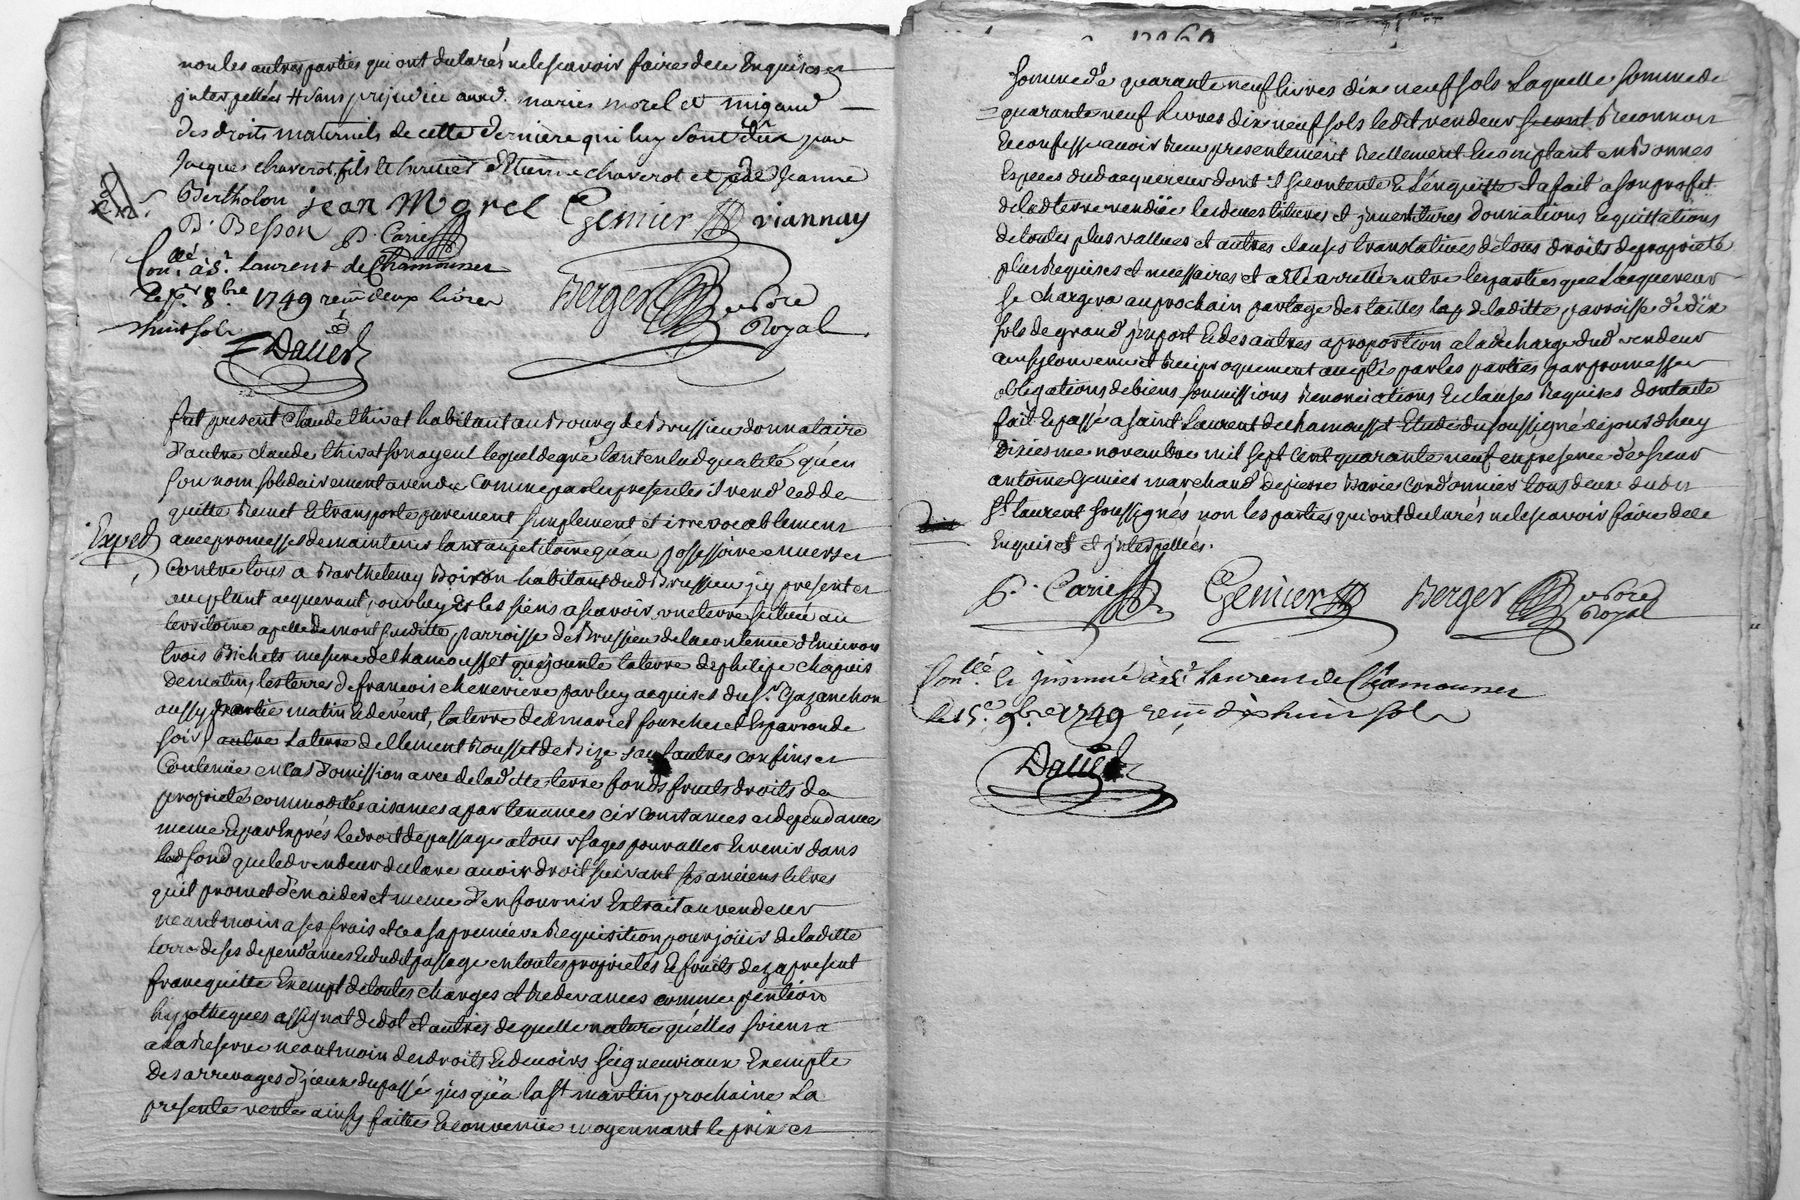 non les autres parties qui ont declarés ne le scavoir faire de ce Enquises et
jnterpellées # sans prejudice auxd. maries morel et migaud
des droits maternels de cette derniere qui luy sont dûs par
Jacques chaverot, fils et heritier d'Etienne chaverot et de Jeanne
Bertholon jean Morel Genier viannay
B. Besson P. Carie
Conllé à St. Laurent de Chamousset
Le 8.bre 1749 remi deux livres
huit sols
Berger no.re Royal
Daller
fut present Claude thivat habitant au Bourg de Brussieu donnataire
d'autre claude thivat son ayeul lequel de gré tant en lad qualité qu'en
son nom solidairement a vendu comme par les presentes il vend cedde
quitte Remet et transporte purement simplement et irrevocablement
Exped
avec promesses de maintenir tant au petitoire qu'au possessoire envers et
contre tous a Barthelemy Boiron habitant dud Brussieu jcy present et
acceptant acquerant, pour luy et les siens a scavoir une terre scituée au
territoire apellé de mont paroisse de Brussieu de la contenue d'environ
trois Bichets mesure de chamousset que jouxte la terre de philipe chapuis
de matin, les terres de francois chenevriere par luy acquises du Sr. Gazanchon
aussy partie matin et de vent, la terre de maries fourchet et Esparron de
soir, autre la terre de Clement Rousset de Bize sauf autres confins et
contenue en cas d'omission avec de lad'itte terre fonds fruits droits de
proprieté commodités aisances apartenances circonstances et dependances
meme et par Exprés le droit de passage a tous usages pour aller et venir dans
led fond que led vendeur declare avoir droit suivant ses anciens titres
qu'il promet d'en aider et meme d'en fournir Extrait au vendeur
neantmoin a ses frais et a sa premiere Requisition pour joüir de laditte
terre de ses dependances et dudit passage en toutes proprietés et fruits dez a present
franc quitte Exempt de toutes charges et redevances comme pention
hypotheques assignat de dot et autres de quelle nature qu'elles soient
a la Reserve neantmoin des droits et devoirs seigneuriaux Exempte
des arrerages d'jceux du passé jusqu'a la St martin prochaine La
presente vente ainsy faitte et convenüe moyennant le prix et
somme de quarante neuf livres dix neuf sols Laquelle somme de
quarante neuf Livres dix neuf sols ledit vendeur Reconnoit
et confesse avoir Receu presentement Reellement et comptant en Bonnes
Especes dud acquereur dont il se contente et l'en quitte et a fait a son profit
de lad terre vendüe les devestitures et jnvestitures donnations et quittations
de toutes plus vallues et autres clauses translatives de tous droits de proprieté
plus Requises et necessaires et a eté arretté entre les parties que Lacquereur
se chargera au prochain partage des tailles de laditte parroisse de dix
sols de grand jmport et des autres a proportion a la decharge dud vendeur
ainsy convenu et Reciproquement accepté par les parties par promesses
obligations de biens soumissions Renonciations et clauses Requises dont acte
fait et passé a saint Laurent de chamousset Etude du soussigné cejourd'huy
dixiesme novembre mil sept cent quarante neuf en presence de sieur
antoine Genier marchand de pierre Carie cordonnier tous deux dudit
St. laurent soussignés non les parties qui ont declarés ne le scavoir faire de ce
Enquises et et jnterpellées.
P. Carie Genier Berger no.re Royal
Conllé et jnsinué à St. Laurent de Chamousset
le 15.e 9.bre 1749 remi dix huit sols
Daller